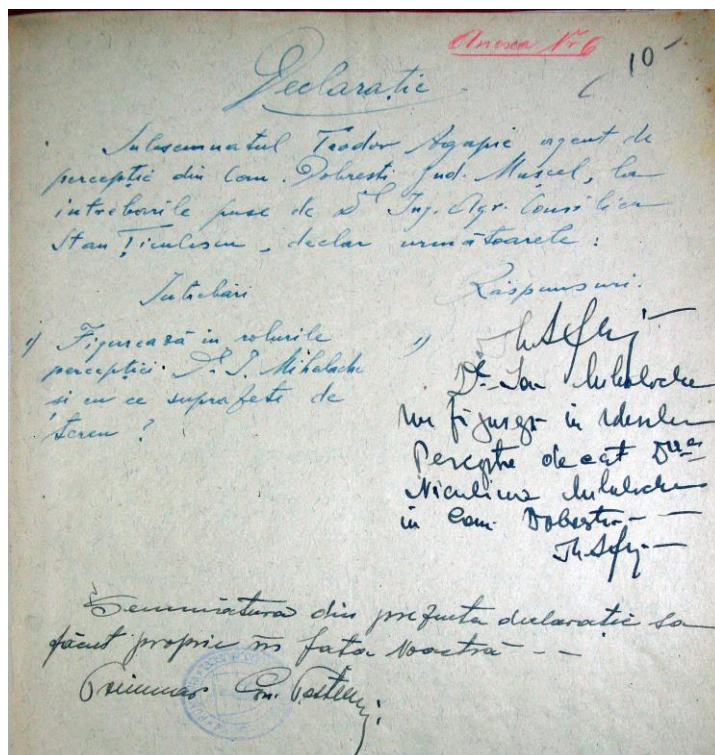 Anexa Nr 6
10
Declarație
Subsemnatul Teodor Agapie agent de
percepție din Com. Dobrești Jud. Mușcel, la
intrebarile puse de Dl Ing. Agr. Consilier
Stan Țiculescu, declar următoarele:
Intrebări
Răspunsuri.
1) Figurează in rolurile
percepției Dl I. Mihalache
și cu ce suprafețe de
teren?
1)
Dl Ion Mihalache
nu figureză in rolurile
Percepție decat Dna
Niculina Mihalache
in Com. Dobrești
Semnătură din prezenta declaratie sa
făcut proprie în fata Noastră
Primar